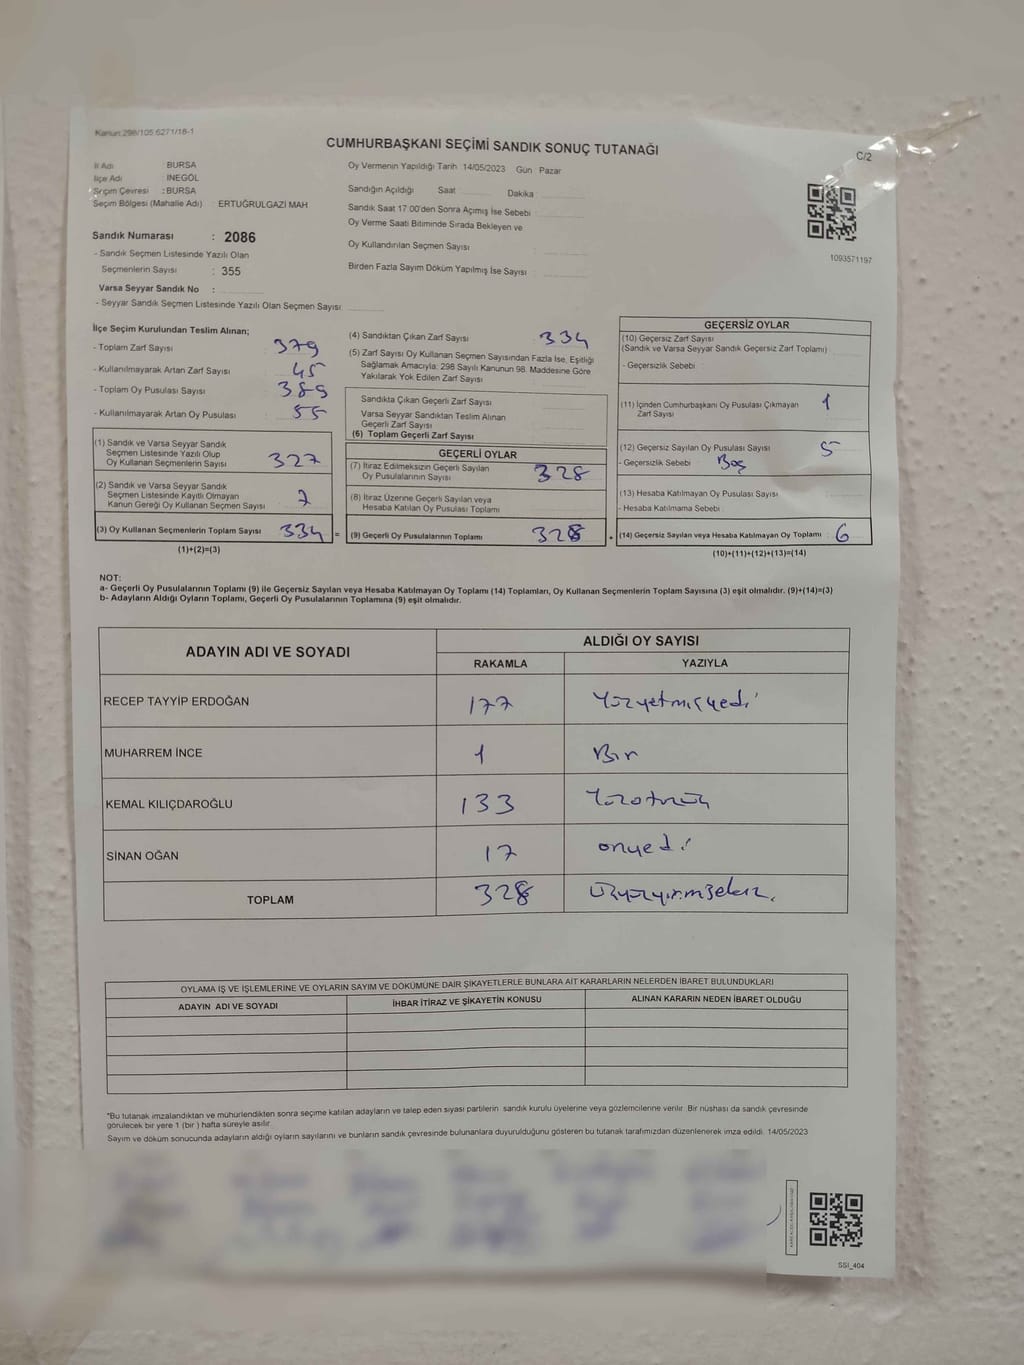 Kanun:298/105.6271/18-1
CUMHURBAŞKANI SEÇİMİ SANDIK SONUÇ TUTANAĞI
C/2
İl Adı : BURSA
İlçe Adı : İNEGÖL
Seçim Çevresi : BURSA
Seçim Bölgesi (Mahalle Adı) : ERTUĞRULGAZİ MAH
Oy Vermenin Yapıldığı Tarih 14/05/2023 Gün Pazar
Sandığın Açıldığı Saat Dakika
Sandık Saat 17.00'den Sonra Açımış İse Sebebi
Oy Verme Saati Bitiminde Sırada Bekleyen ve
Oy Kullandırılan Seçmen Sayısı
Birden Fazla Sayım Döküm Yapılmış İse Sayısı
1093571197
Sandık Numarası : 2086
- Sandık Seçmen Listesinde Yazılı Olan
Seçmenlerin Sayısı : 355
Varsa Seyyar Sandık No :
- Seyyar Sandık Seçmen Listesinde Yazılı Olan Seçmen Sayısı:
İlçe Seçim Kurulundan Teslim Alınan;
- Toplam Zarf Sayısı 379
- Kullanılmayarak Artan Zarf Sayısı 45
- Toplam Oy Pusulası Sayısı 389
- Kullanılmayarak Artan Oy Pusulası 55
(1) Sandık ve Varsa Seyyar Sandık
Seçmen Listesinde Yazılı Olup
Oy Kullanan Seçmenlerin Sayısı 327
(2) Sandık ve Varsa Seyyar Sandık
Seçmen Listesinde Kayıtlı Olmayan
Kanun Gereği Oy Kullanan Seçmen Sayısı 7
(3) Oy Kullanan Seçmenlerin Toplam Sayısı 334
(1)+(2)=(3)
(4) Sandıktan Çıkan Zarf Sayısı 334
(5) Zarf Sayısı Oy Kullanan Seçmen Sayısından Fazla İse, Eşitliği
Sağlamak Amacıyla; 298 Sayılı Kanunun 98. Maddesine Göre
Yakılarak Yok Edilen Zarf Sayısı
Sandıkta Çıkan Geçerli Zarf Sayısı
Varsa Seyyar Sandıktan Teslim Alınan
Geçerli Zarf Sayısı
(6) Toplam Geçerli Zarf Sayısı
GEÇERLİ OYLAR
(7) İtiraz Edilmeksizin Geçerli Sayılan
Oy Pusulalarının Sayısı 328
(8) İtiraz Üzerine Geçerli Sayılan veya
Hesaba Katılan Oy Pusulası Toplamı
= (9) Geçerli Oy Pusulalarının Toplamı 328 +
GEÇERSİZ OYLAR
(10) Geçersiz Zarf Sayısı
(Sandık ve Varsa Seyyar Sandık Geçersiz Zarf Toplamı)
- Geçersizlik Sebebi
(11) İçinden Cumhurbaşkanı Oy Pusulası Çıkmayan
Zarf Sayısı 1
(12) Geçersiz Sayılan Oy Pusulası Sayısı 5
- Geçersizlik Sebebi Boş
(13) Hesaba Katılmayan Oy Pusulası Sayısı
- Hesaba Katılmama Sebebi
(14) Geçersiz Sayılan veya Hesaba Katılmayan Oy Toplamı 6
(10)+(11)+(12)+(13)=(14)
NOT:
a- Geçerli Oy Pusulalarının Toplamı (9) ile Geçersiz Sayılan veya Hesaba Katılmayan Oy Toplamı (14) Toplamları, Oy Kullanan Seçmenlerin Toplam Sayısına (3) eşit olmalıdır. (9)+(14)=(3)
b- Adayların Aldığı Oyların Toplamı, Geçerli Oy Pusulalarının Toplamına (9) eşit olmalıdır.
ADAYIN ADI VE SOYADI
ALDIĞI OY SAYISI
RAKAMLA YAZIYLA
RECEP TAYYİP ERDOĞAN 177 Yüzyetmişyedi
MUHARREM İNCE 1 Bir
KEMAL KILIÇDAROĞLU 133 Yüzotuzüç
SİNAN OĞAN 17 onyedi
TOPLAM 328 Üçyüzyirmisekiz.
OYLAMA İŞ VE İŞLEMLERİNE VE OYLARIN SAYIM VE DÖKÜMÜNE DAİR ŞİKAYETLERLE BUNLARA AİT KARARLARIN NELERDEN İBARET BULUNDUKLARI
ADAYIN ADI VE SOYADI İHBAR İTİRAZ VE ŞİKAYETİN KONUSU ALINAN KARARIN NEDEN İBARET OLDUĞU
*Bu tutanak imzalandıktan ve mühürlendikten sonra seçime katılan adayların ve talep eden siyasi partilerin sandık kurulu üyelerine veya gözlemcilerine verilir. Bir nüshası da sandık çevresinde
görülecek bir yere 1 (bir ) hafta süreyle asılır.
Sayım ve döküm sonucunda adayların aldığı oyların sayılarını ve bunların sandık çevresinde bulunanlara duyurulduğunu gösteren bu tutanak tarafımızdan düzenlenerek imza edildi. 14/05/2023
SSI_404